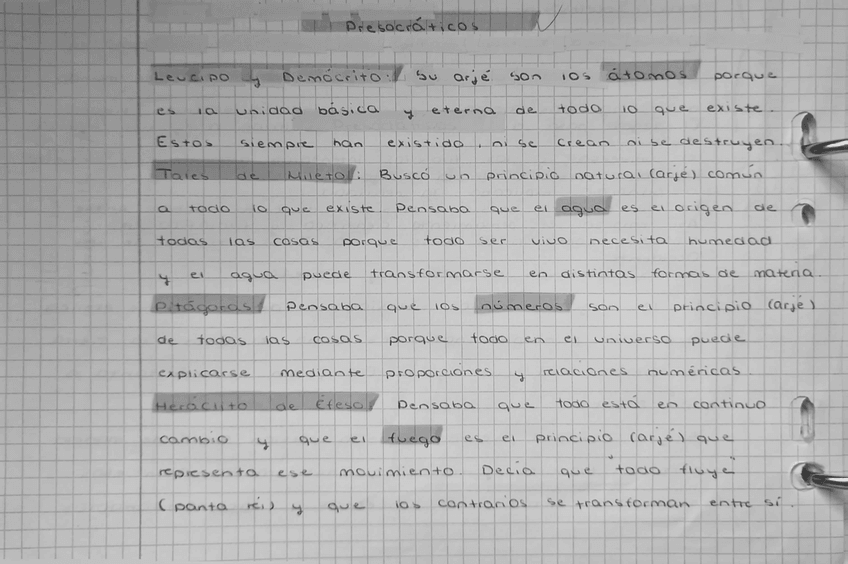 Presocráticos
Leucipo y Demócrito: Su arjé son los átomos porque
es la unidad básica y eterna de todo lo que existe.
Estos siempre han existido, ni se crean ni se destruyen.
Tales de Mileto: Buscó un principio natural (arjé) común
a todo lo que existe. Pensaba que el agua es el origen de
todas las cosas porque todo ser vivo necesita humedad
y el agua puede transformarse en distintas formas de materia.
Pitágoras: Pensaba que los números son el principio (arjé)
de todas las cosas porque todo en el universo puede
explicarse mediante proporciones y relaciones numéricas.
Heráclito de Éfeso: Pensaba que todo está en continuo
cambio y que el fuego es el principio (arjé) que
representa ese movimiento. Decía que "todo fluye"
(panta rei) y que los contrarios se transforman entre sí.